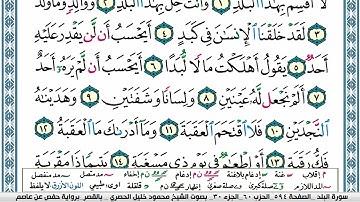 لَآ أُقْسِمُ بِهَٰذَا ٱلْبَلَدِ ١ وَأَنتَ حِلٌّۢ بِهَٰذَا ٱلْبَلَدِ ٢ وَوَالِدٍ وَمَا وَلَدَ
٣ لَقَدْ خَلَقْنَا ٱلْإِنسَٰنَ فِى كَبَدٍ ٤ أَيَحْسَبُ أَن لَّن يَقْدِرَ عَلَيْهِ
أَحَدٌ ٥ يَقُولُ أَهْلَكْتُ مَالًا لُّبَدًا ٦ أَيَحْسَبُ أَن لَّمْ يَرَهُۥٓ أَحَدٌ
٧ أَلَمْ نَجْعَل لَّهُۥ عَيْنَيْنِ ٨ وَلِسَانًا وَشَفَتَيْنِ ٩ وَهَدَيْنَٰهُ
ٱلنَّجْدَيْنِ ١٠ فَلَا ٱقْتَحَمَ ٱلْعَقَبَةَ ١١ وَمَآ أَدْرَىٰكَ مَا ٱلْعَقَبَةُ ١٢
فَكُّ رَقَبَةٍ ١٣ أَوْ إِطْعَٰمٌ فِى يَوْمٍ ذِى مَسْغَبَةٍ ١٤ يَتِيمًا ذَا مَقْرَبَةٍ
سورة البلد الصفحة ٥٩٤ الحزب ٦٠ الجزء ٣٠ بصوت الشيخ محمود خليل الحصري بالقصر برواية حفص عن عاصم